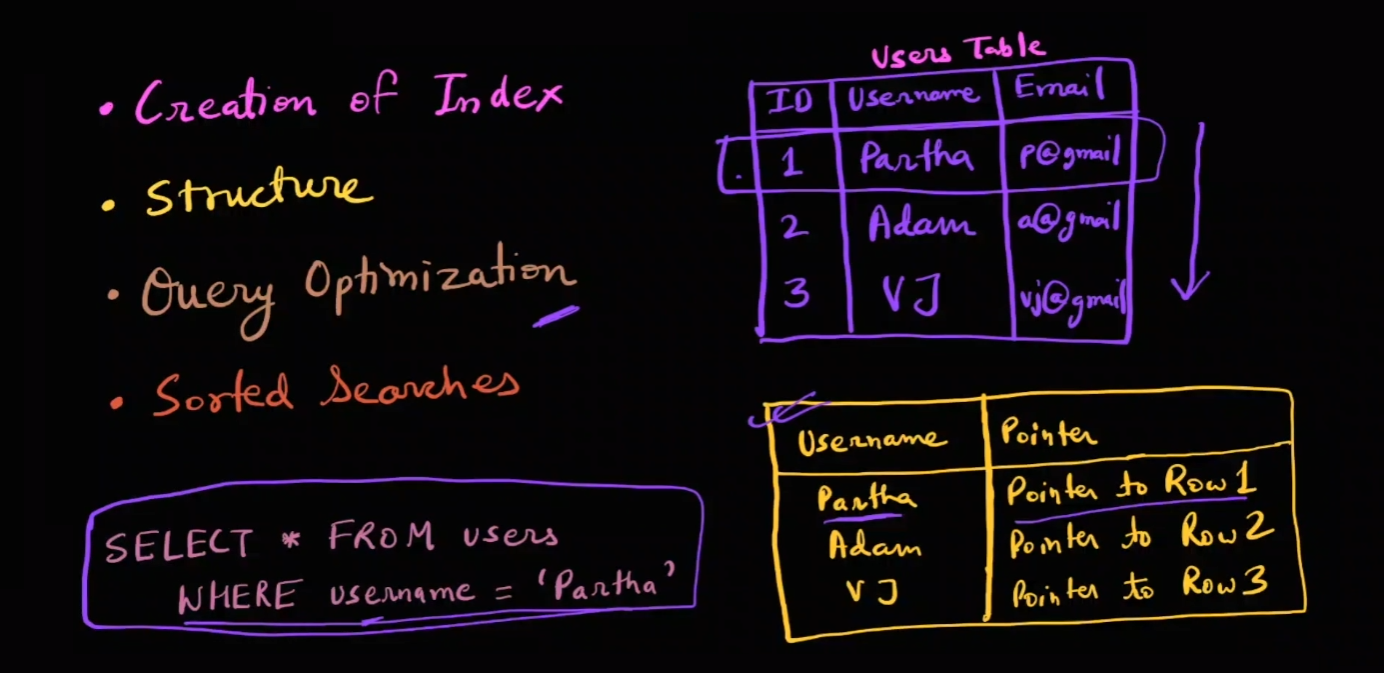 • Creation of Index
• Structure
• Query Optimization
• Sorted Searches
SELECT * FROM users
WHERE username = 'Partha'
Users Table
ID Username Email
1 Partha p@gmail
2 Adam a@gmail
3 VJ vj@gmail
Username Pointer
Partha Pointer to Row 1
Adam Pointer to Row 2
VJ Pointer to Row 3